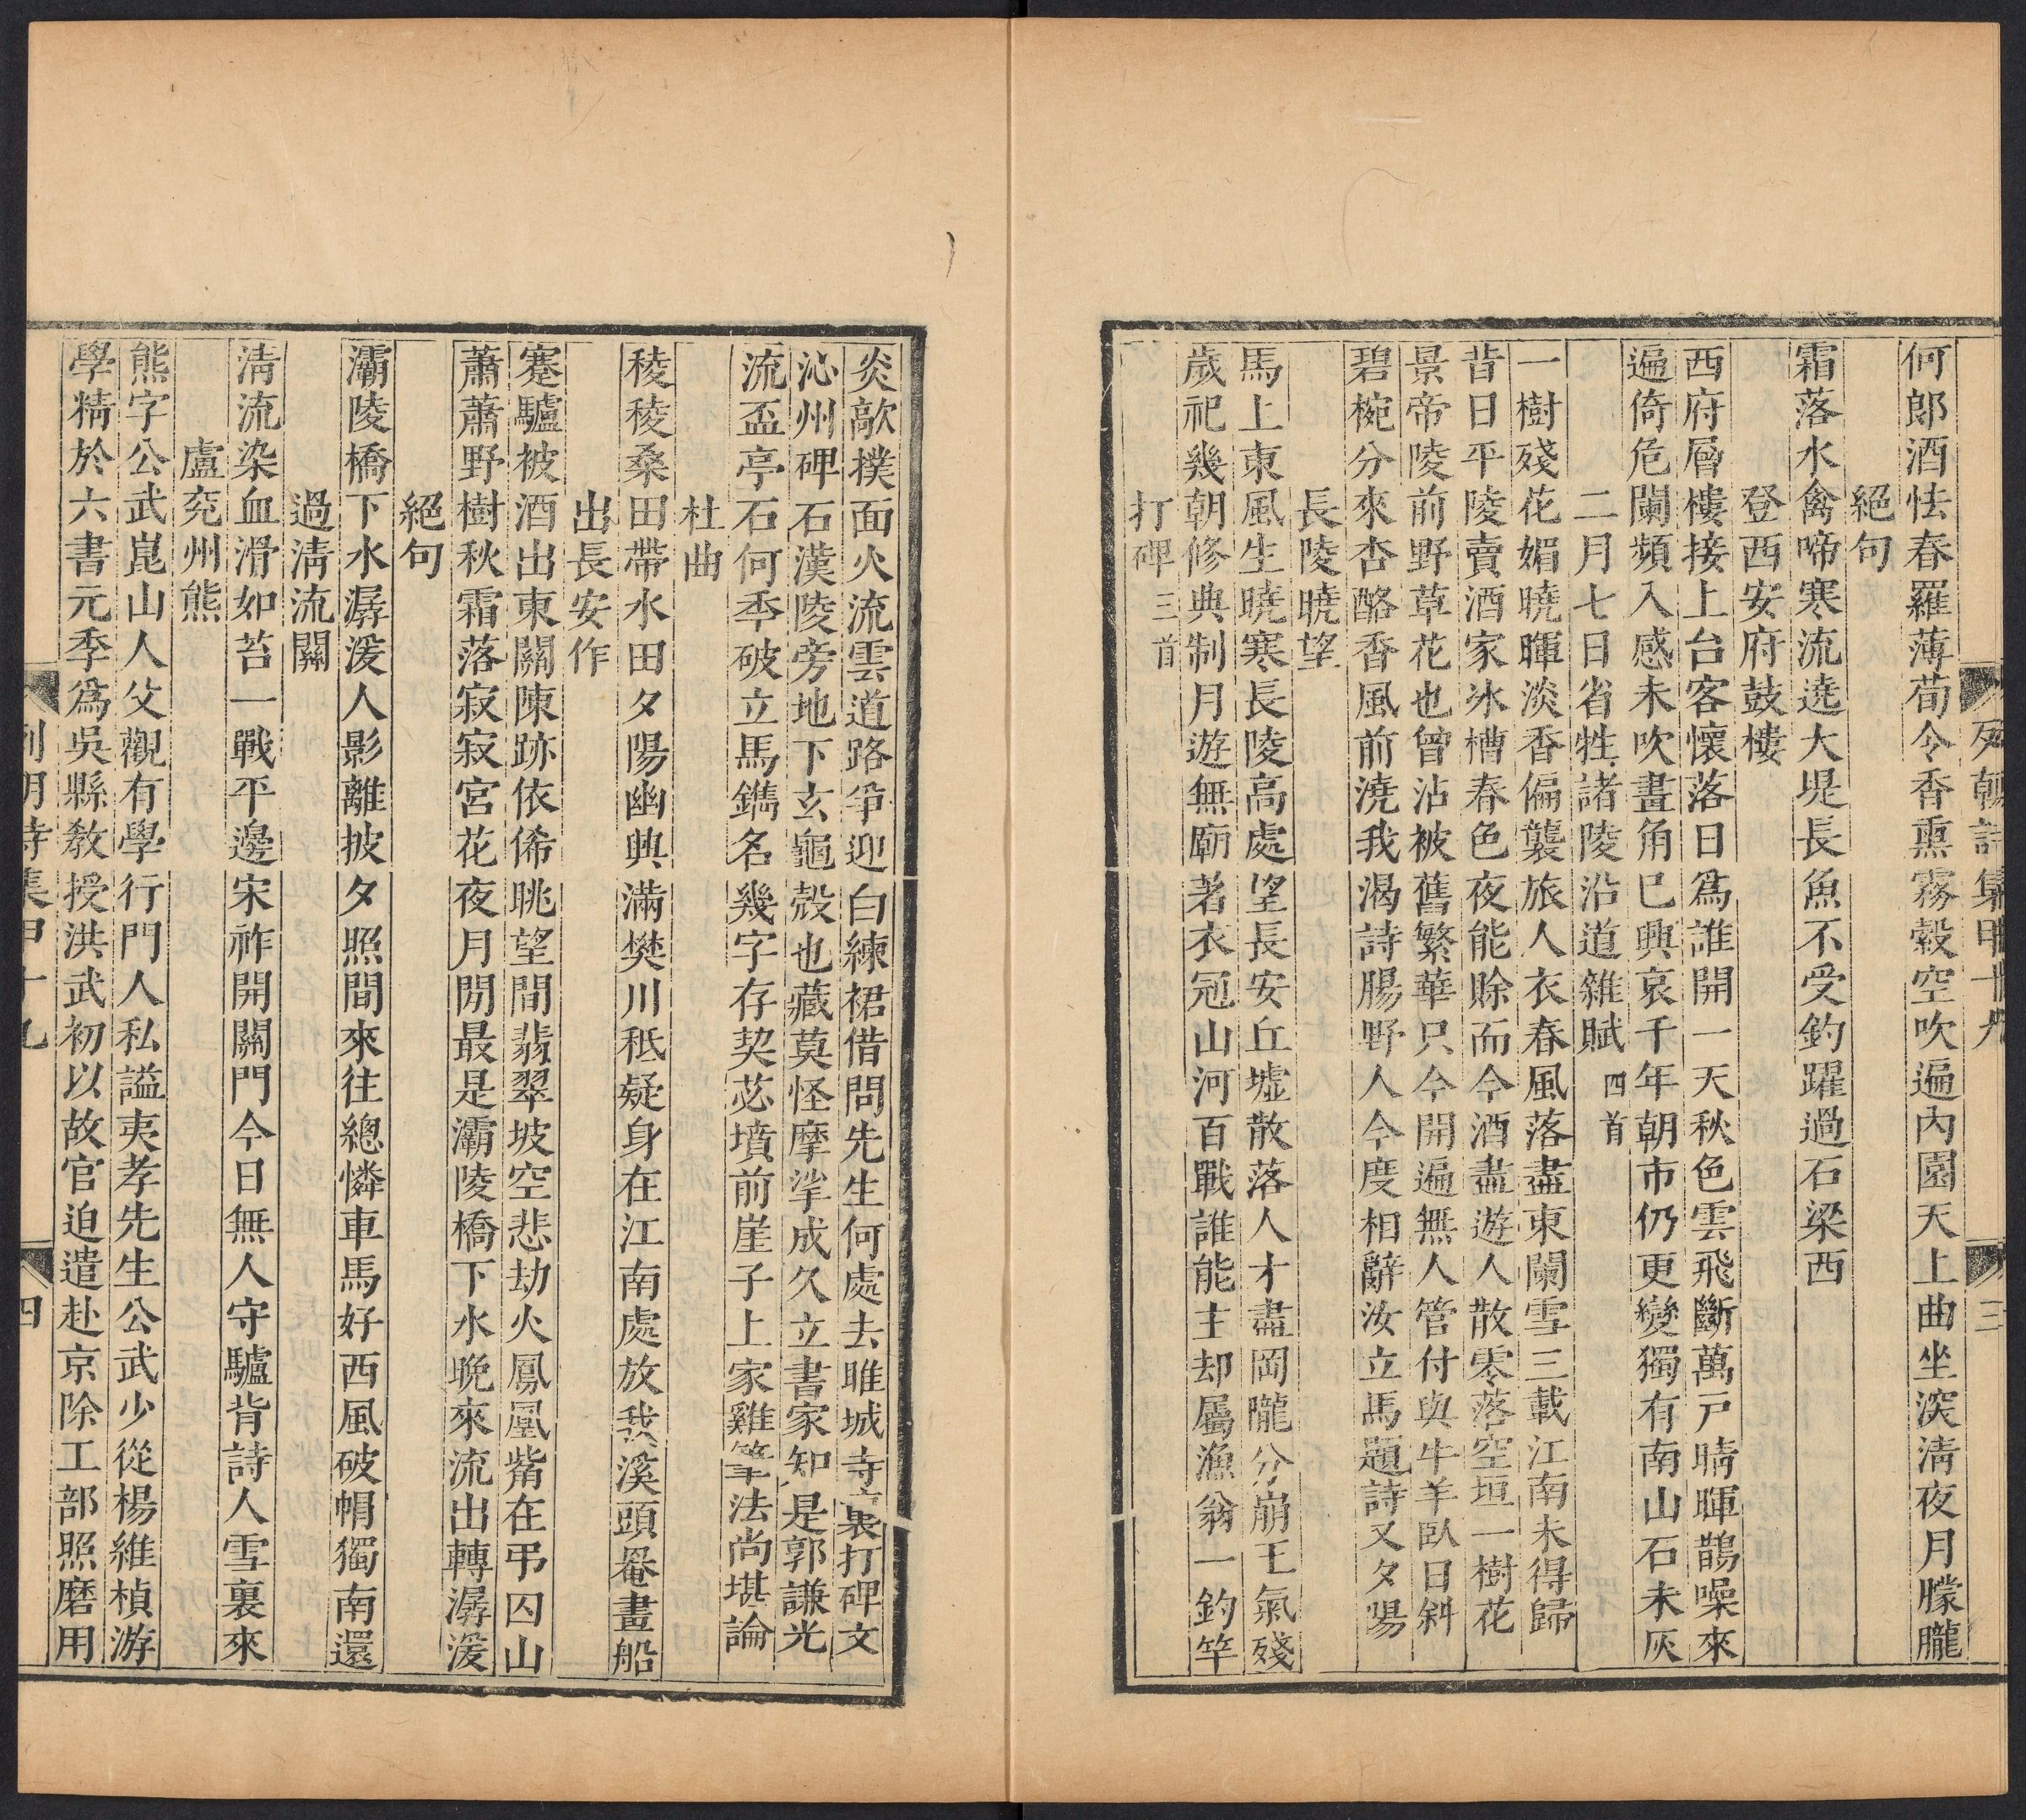 列朝詩集甲十九 三
何郎酒怯春羅薄荀令香熏霧縠空吹遍內園天上曲坐深淸夜月朦朧
絕句
霜落水禽啼寒流遶大堤長魚不受釣躍過石梁西
登西安府鼓樓
西府層樓接上台客懷落日爲誰開一天秋色雲飛斷萬戸晴暉鵲噪來
遍倚危闌頻入感未吹畫角巳興哀千年朝市仍更變獨有南山石未灰
二月七日省牲諸陵沿道雜賦四首
一樹殘花媚曉暉淡香偏襲旅人衣春風落盡東闌雪三載江南未得歸
昔日平陵賣酒家氷槽春色夜能賖而今酒盡遊人散零落空垣一樹花
景帝陵前野草花也曾沾被舊繁華只今開遍無人管付與牛羊臥日斜
碧椀分來杏酪香風前澆我渴詩腸野人今度相辭汝立馬題詩又夕陽
長陵曉望
馬上東風生曉寒長陵高處望長安丘墟散落人才盡岡隴分崩王氣殘
歲祀幾朝修典制月遊無廟著衣冠山河百戰誰能主却屬漁翁一釣竿
打碑三首
炎歊撲面火流雲道路爭迎白練裙借問先生何處去雎城寺裏打碑文
沁州碑石漢陵旁地下玄龜殼也藏莫怪摩挲成久立書家知是郭謙光
流盃亭石何秊破立馬鐫名幾字存契苾墳前崖子上家雞筆法尚堪論
杜曲
稜稜桑田帶水田夕陽幽興滿樊川秪疑身在江南處放我溪頭罨畫船
出長安作
蹇驢被酒出東關陳跡依俙眺望間翡翠坡空悲劫火鳳凰觜在弔囚山
蕭蕭野樹秋霜落寂寂宮花夜月閒最是灞陵橋下水晩來流出轉潺湲
絕句
灞陵橋下水潺湲人影離披夕照間來往總憐車馬好西風破帽獨南還
過淸流關
淸流染血滑如苔一戰平邊宋祚開關門今日無人守驢背詩人雪裏來
盧兖州熊
熊字公武崑山人父觀有學行門人私謚夷孝先生公武少從楊維楨游
學精於六書元季爲吳縣敎授洪武初以故官迫遣赴京除工部照磨用
列朝詩集甲十九 四